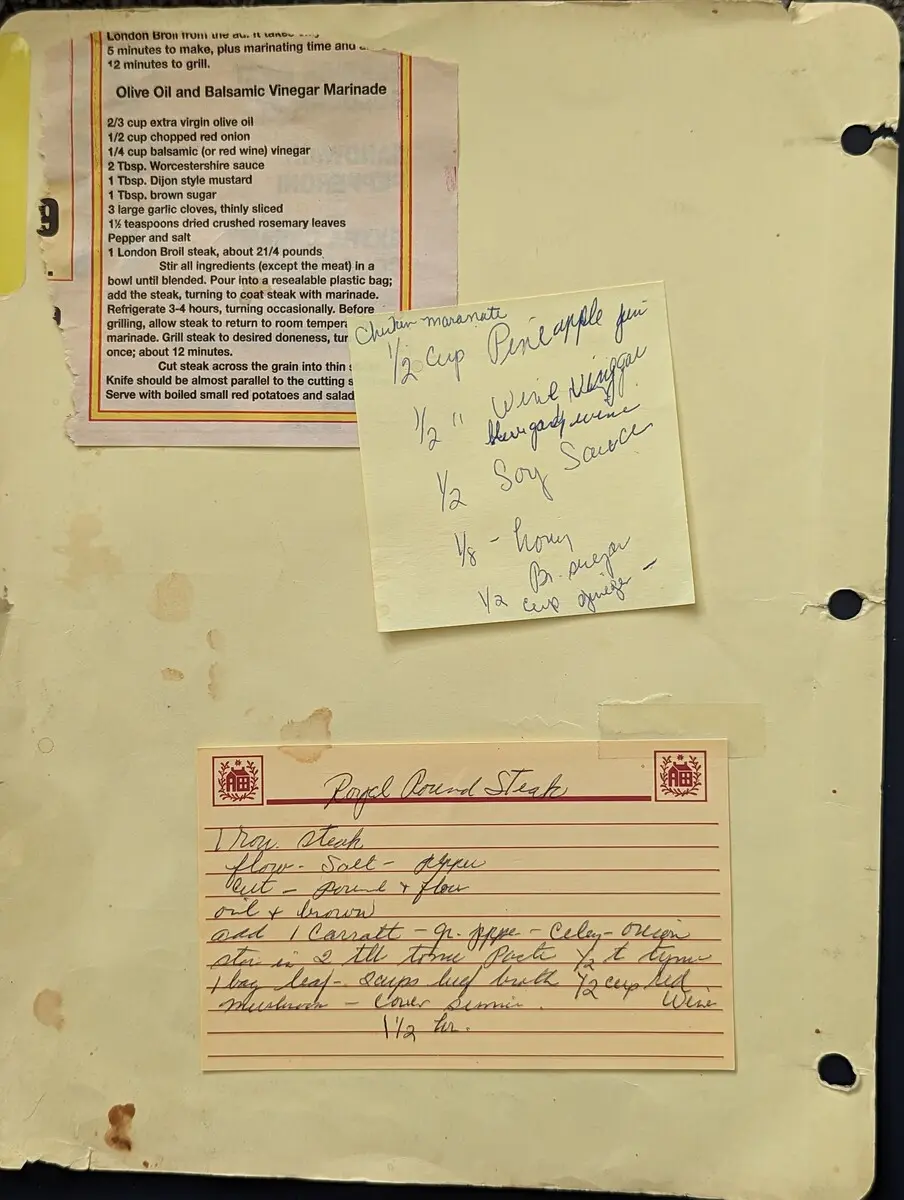 London Broil from the ad. It takes only
5 minutes to make, plus marinating time and
12 minutes to grill.
Olive Oil and Balsamic Vinegar Marinade
2/3 cup extra virgin olive oil
1/2 cup chopped red onion
1/4 cup balsamic (or red wine) vinegar
2 Tbsp. Worcestershire sauce
1 Tbsp. Dijon style mustard
1 Tbsp. brown sugar
3 large garlic cloves, thinly sliced
1½ teaspoons dried crushed rosemary leaves
Pepper and salt
1 London Broil steak, about 21/4 pounds
Stir all ingredients (except the meat) in a
bowl until blended. Pour into a resealable plastic bag;
add the steak, turning to coat steak with marinade.
Refrigerate 3-4 hours, turning occasionally. Before
grilling, allow steak to return to room tempera
marinade. Grill steak to desired doneness, tur
once; about 12 minutes.
Cut steak across the grain into thin s
Knife should be almost parallel to the cutting s
Serve with boiled small red potatoes and salad
Chicken maranate
1/2 Cup Pineapple
1/2 " Wine
wine
1/2 Soy Sauce
1/8 - hony
Br. sugar
1/2 cup -
Royal Round Steak
1 steak
flow - Salt -
cut - Pound + flow
oil + brown
add 1 Carratt - gr. - - onion
in 2 1/2 t
1 bay leaf - 2 cups broth 1/2 cup Red
mushroom - cover Wine
1 1/2 hr.